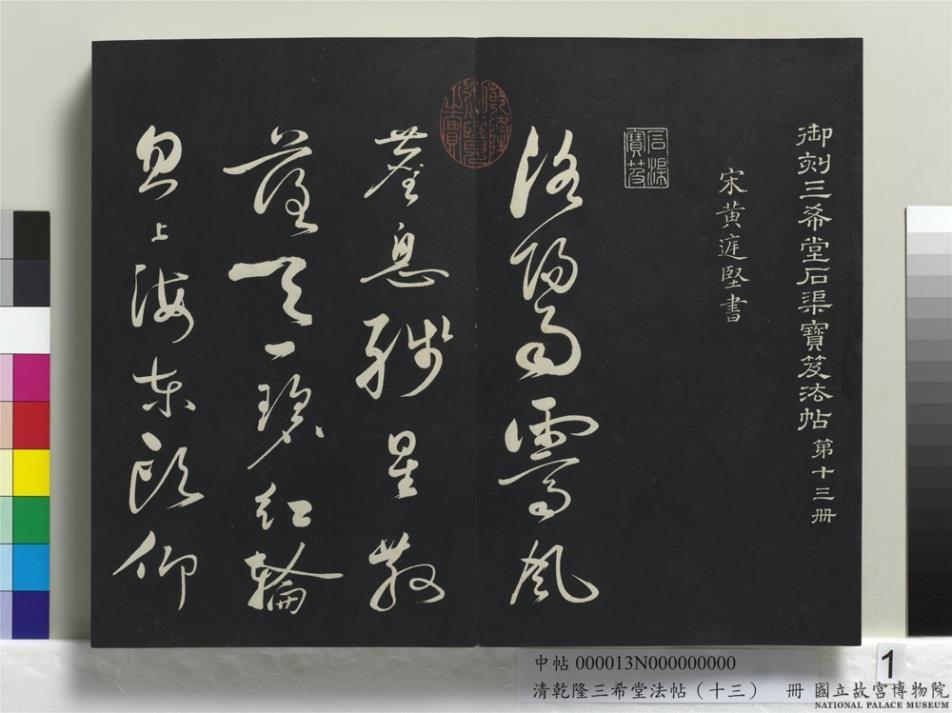 御刻三希堂石渠寶笈法帖 第十三冊
宋黃庭堅書
石渠寶笈
洛陽雨霽風
乾隆御覽之寶
塵息殘星散
落天一碧紅輪
忽上海東頭仰
中帖 000013N000000000
清乾隆三希堂法帖（十三） 冊
1
國立故宮博物院
NATIONAL PALACE MUSEUM